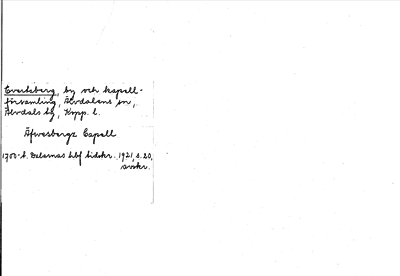 Evertsberg, by och kapell-
församling, Älvdalens sn,
Älvdals tg, Kopp. l.
Äfwerbergz Capell
1700-t. Dalarnas hbf tidskr. 1921, s. 20,
avskr.